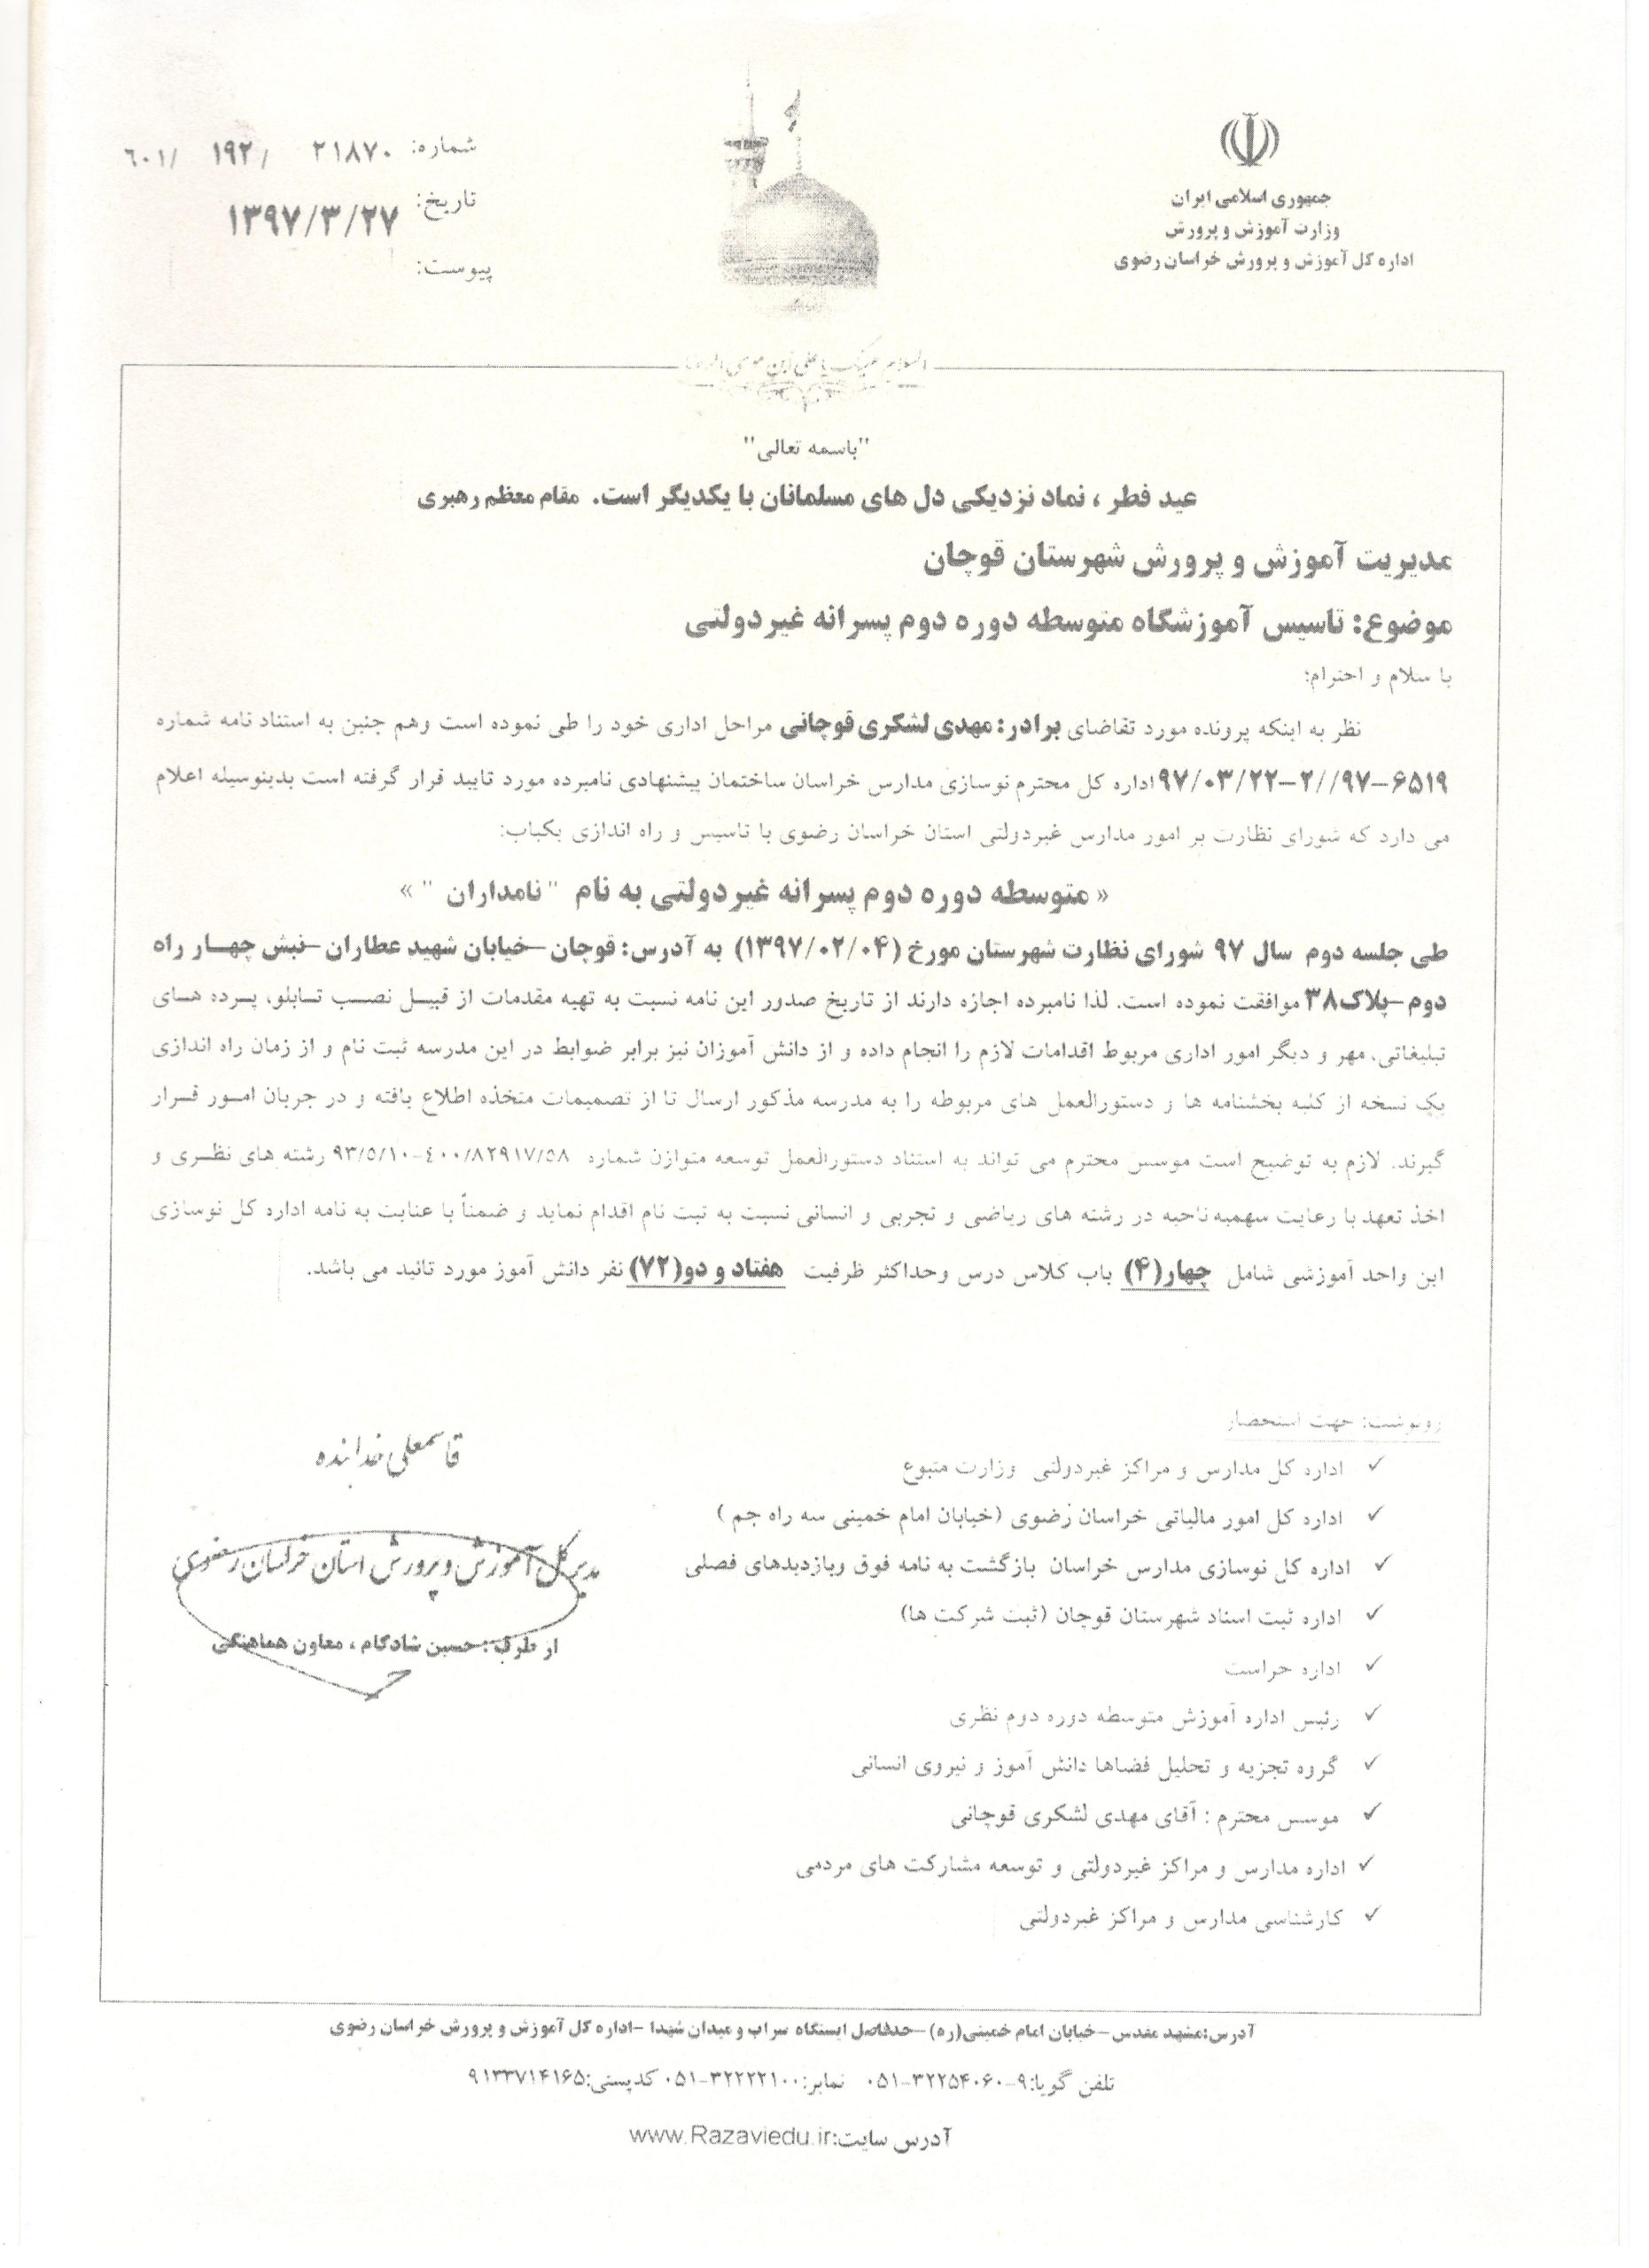 جمهوری اسلامی ایران
وزارت آموزش و پرورش
اداره کل آموزش و پرورش خراسان رضوی
شماره: ۲۱۸۷۰ /۱۹۲ /۶۰۱
تاریخ: ۱۳۹۷/۳/۲۷
پیوست:
"باسمه تعالی"
عید فطر ، نماد نزدیکی دل های مسلمانان با یکدیگر است. مقام معظم رهبری
مدیریت آموزش و پرورش شهرستان قوچان
موضوع: تاسیس آموزشگاه متوسطه دوره دوم پسرانه غیردولتی
با سلام و احترام:
نظر به اینکه پرونده مورد تقاضای برادر: مهدی لشکری قوچانی مراحل اداری خود را طی نموده است وهم چنین به استناد نامه شماره
۶۵۱۹-۹۷//۲-۹۷/۰۳/۲۲ اداره کل محترم نوسازی مدارس خراسان ساختمان پیشنهادی نامبرده مورد تایید قرار گرفته است بدینوسیله اعلام
می دارد که شورای نظارت بر امور مدارس غیردولتی استان خراسان رضوی با تاسیس و راه اندازی یکباب:
« متوسطه دوره دوم پسرانه غیردولتی به نام " نامداران " »
طی جلسه دوم سال ۹۷ شورای نظارت شهرستان مورخ (۱۳۹۷/۰۲/۰۴) به آدرس: قوچان –خیابان شهید عطاران –نبش چهـار راه
دوم –پلاک۳۸ موافقت نموده است. لذا نامبرده اجازه دارند از تاریخ صدور این نامه نسبت به تهیه مقدمات از قبیـل نصـب تـابلو، پـرده هـای
تبلیغاتی، مهر و دیگر امور اداری مربوط اقدامات لازم را انجام داده و از دانش آموزان نیز برابر ضوابط در این مدرسه ثبت نام و از زمان راه اندازی
یک نسخه از کلیه بخشنامه ها و دستورالعمل های مربوطه را به مدرسه مذکور ارسال تا از تصمیمات متخذه اطلاع یافته و در جریان امـور قـرار
گیرند. لازم به توضیح است موسس محترم می تواند به استناد دستورالعمل توسعه متوازن شماره ۴۰۰/۸۲۹۱۷/۵۸-۹۳/۵/۱۰ رشته های نظـری و
اخذ تعهد با رعایت سهمیه ناحیه در رشته های ریاضی و تجربی و انسانی نسبت به ثبت نام اقدام نماید و ضمناً با عنایت به نامه اداره کل نوسازی
این واحد آموزشی شامل چهار(۴) باب کلاس درس وحداکثر ظرفیت هفتاد و دو(۷۲) نفر دانش آموز مورد تائید می باشد.
رونوشت: جهت استحضار
✓ اداره کل مدارس و مراکز غیردولتی وزارت متبوع
✓ اداره کل امور مالیاتی خراسان رضوی (خیابان امام خمینی سه راه جم )
✓ اداره کل نوسازی مدارس خراسان بازگشت به نامه فوق وبازدیدهای فصلی
✓ اداره ثبت اسناد شهرستان قوچان (ثبت شرکت ها)
✓ اداره حراست
✓ رئیس اداره آموزش متوسطه دوره دوم نظری
✓ گروه تجزیه و تحلیل فضاها دانش آموز و نیروی انسانی
✓ موسس محترم : آقای مهدی لشکری قوچانی
✓ اداره مدارس و مراکز غیردولتی و توسعه مشارکت های مردمی
✓ کارشناسی مدارس و مراکز غیردولتی
قاسمعلی خدابنده
مدیر کل آموزش و پرورش استان خراسان رضوی
از طرف : حسین شادکام ، معاون هماهنگی
آدرس:مشهد مقدس –خیابان امام خمینی(ره) –حدفاصل ایستگاه سراب و میدان شهدا –اداره کل آموزش و پرورش خراسان رضوی
تلفن گویا:۹-۳۲۲۵۴۰۶۰-۰۵۱ نمابر:۳۲۲۲۲۱۰۰-۰۵۱ کدپستی:۹۱۳۳۷۱۴۱۶۵
آدرس سایت:www.Razaviedu.ir